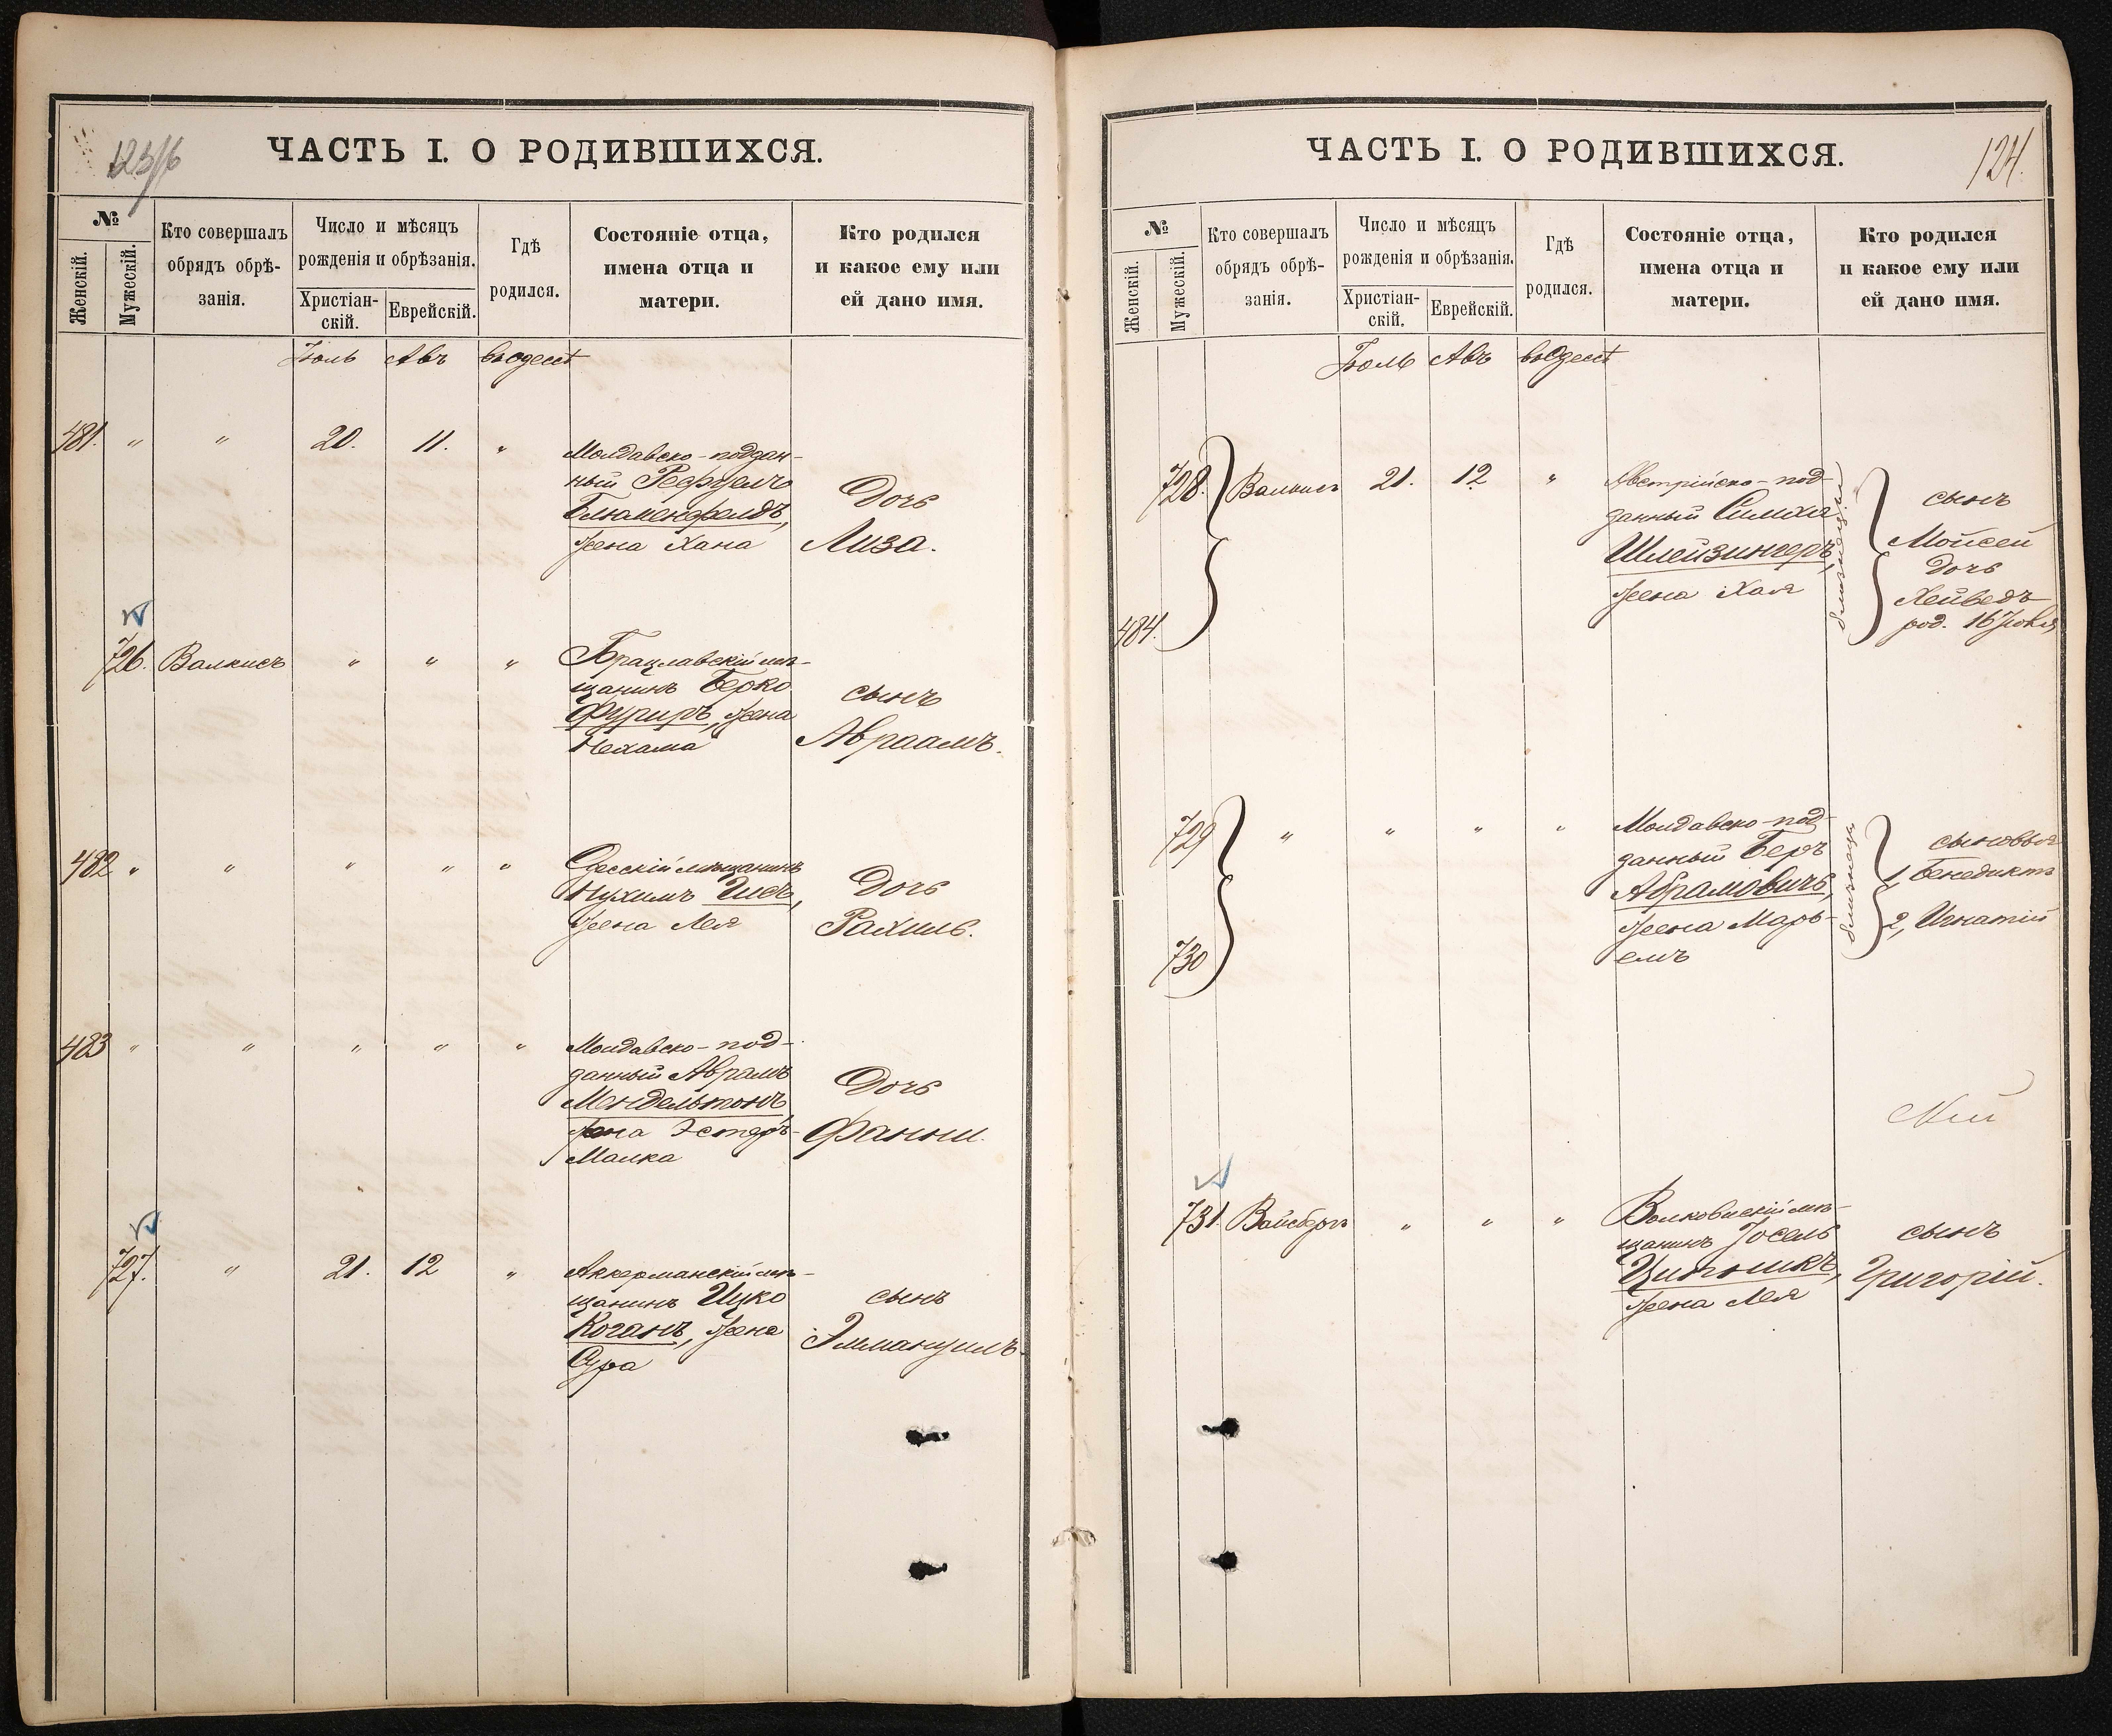 ЧАСТЬ I. О РОДИВШИХСЯ.
№
Женскій.
Мужескій.
Кто совершалъ
обрядъ обрѣ-
занія.
Число и мѣсяцъ
рожденія и обрѣзанія.
Христіан-
скій.
Еврейскій.
Гдѣ
родился.
Состояніе отца,
имена отца и
матери.
Кто родился
и какое ему или
ей дано имя.
Іюль Авъ въ Одессѣ
481. " " 20. 11. "
Молдавско-поддан-
ный Рефуелъ
Блюменфельдъ,
жена Хана
Дочь
Лиза.
726. Валкисъ " " "
Брацлавскій мѣ-
щанинъ Берко
Фуриръ, жена
Нехама
сынъ
Авраамъ.
482 " " " " "
Одесскій мѣщанинъ
Нухимъ
жена Лея
Дочь
Рахиль.
483 " " " " "
Молдавско-под-
данный Абрамъ
Мендельсонъ
жена Эстеръ-
Малка
Дочь
Фанни.
727. " 21. 12 "
Аккерманскій мѣ-
щанинъ Ицко
Коганъ, жена
Сура
сынъ
Эммануилъ.
ЧАСТЬ I. О РОДИВШИХСЯ.
124.
№
Женскій.
Мужескій.
Кто совершалъ
обрядъ обрѣ-
занія.
Число и мѣсяцъ
рожденія и обрѣзанія.
Христіан-
скій.
Еврейскій.
Гдѣ
родился.
Состояніе отца,
имена отца и
матери.
Кто родился
и какое ему или
ей дано имя.
Іюль Авъ въ Одессѣ
728. Валкисъ 21. 12 "
484.
Австрійско-под-
данный Симха
Шлейзингеръ,
жена Хая
близнецы
сынъ
Мойсей
дочь
Хейведъ
род. 16 Іюля
729 " " " "
730
Молдавско-под-
данный Беръ
Абрамовичъ,
жена Марь-
емъ
близнецы
сыновья
1, Бенедиктъ
2, Игнатій
731. Вайсбергъ " " "
Волковискій мѣ-
щанинъ Іосель
жена Лея
сынъ
Григорій.